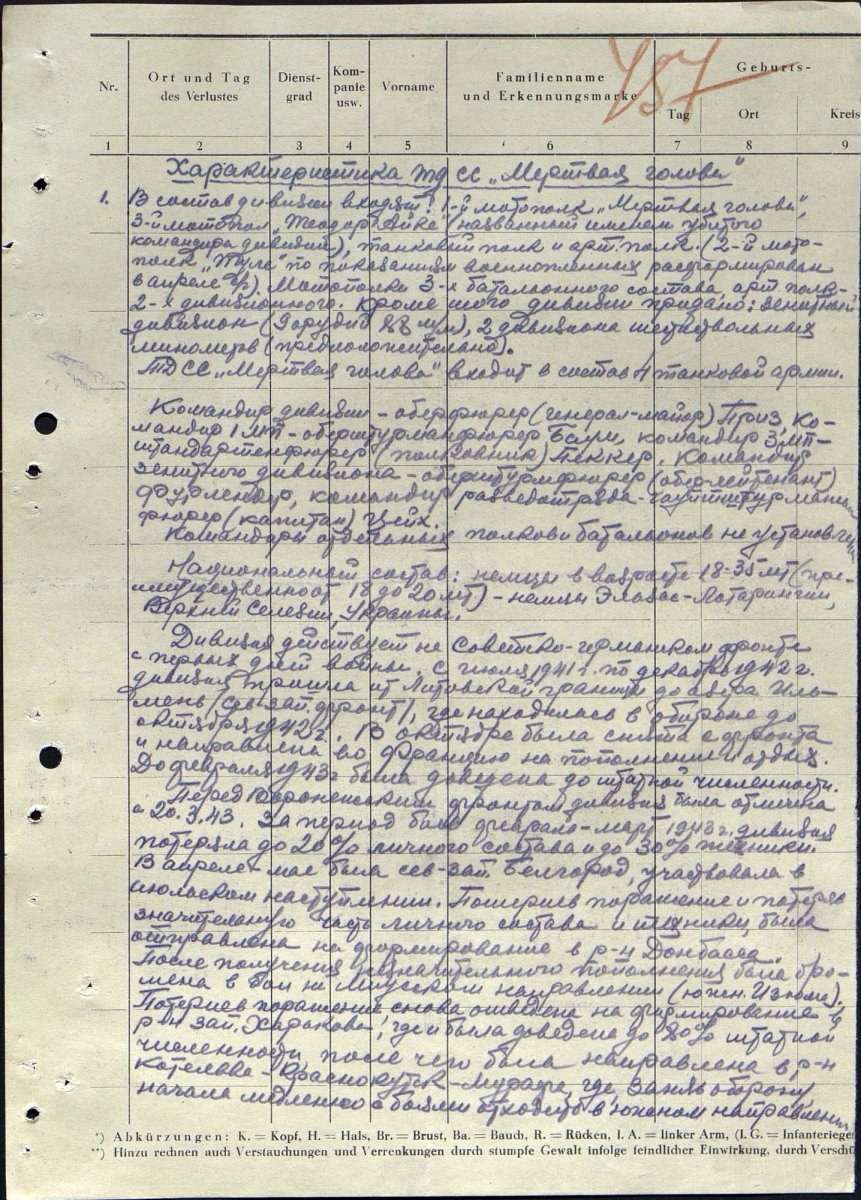 757
Nr.
Ort und Tag des Verlustes
Dienst-grad
Kom-panie usw.
Vorname
Familienname und Erkennungsmarke
Geburts-
Tag
Ort
Kreis
1 2 3 4 5 6 7 8 9
Характеристика тд СС „Мертвая голова"
1. В состав дивизии входят: 1-й мотополк „Мертвая голова",
3-й мотополк „Теодор Айке" (названный именем убитого
командира дивизии), танковый полк и арт. полк. (2-й мото-
полк „Туле" по показаниям военнопленных расформирован
в апреле). Мотополки 3-х батальонного состава, арт. полк-
2-х дивизионного. Кроме того дивизии придано: зенитный
дивизион (9 орудий 88 мм), 2 дивизиона шестиствольных
минометов (предположительно).
ТД СС „Мертвая голова" входит в состав 4 танковой армии.
Командир дивизии - оберфюрер (генерал-майор) Приз, ко-
мандир 1 МП - Баум, командир 3 МП-
штандартенфюрер (полковник) Беккер. Командир
зенитного дивизиона - оберштурмфюрер (обер-лейтенант)
командир разведотряда - гауптштурм
фюрер (капитан) Цейх.
Командиры отдельных полков и батальонов не установлены
Национальный состав: немцы в возрасте 18-35 лет (пре-
имущественно от 18 до 20 лет) - немцы Эльзас-Лотарингии,
Верхней Силезии, Украины.
Дивизия действует на Советско-германском фронте
с первых дней войны. С июля 1941 г. по декабрь 1942 г.
дивизия прошла от Литовской границы до озера Иль-
мень (сев-зап. фронт), где находилась в обороне до
октября 1942 г. В октябре была снята с фронта
и направлена во Францию на пополнение и отдых.
До февраля 1943 г. была доведена до штатной численности.
Перед Воронежским фронтом дивизия была отмечена
с 20.3.43. За период боев февраль-март 1943 г. дивизия
потеряла до 20% личного состава и до 30% техники.
В апреле-мае была сев-зап. Белгород, участвовала в
июльском наступлении. Потерпев поражение и потеряв
значительную часть личного состава и техники, была
отправлена на формирование в р-н Донбасса.
После получения незначительного пополнения была бро-
шена в бои на Миусском направлении (южн. Изюма).
Потерпев поражение снова отведена на формирование в
р-н зап. Харькова, где и была доведена до 80% штатной
численности, после чего была направлена в р-н
Котельва - Краснокутск - Мурафа, где заняв оборону,
начала медленно с боями отходить в южном направлении
*) Abkürzungen: K. = Kopf, H. = Hals, Br. = Brust, Ba. = Bauch, R. = Rücken, l. A. = linker Arm, (I. G. = Infanteriege
**) Hinzu rechnen auch Verstauchungen und Verrenkungen durch stumpfe Gewalt infolge feindlicher Einwirkung, durch Verschü